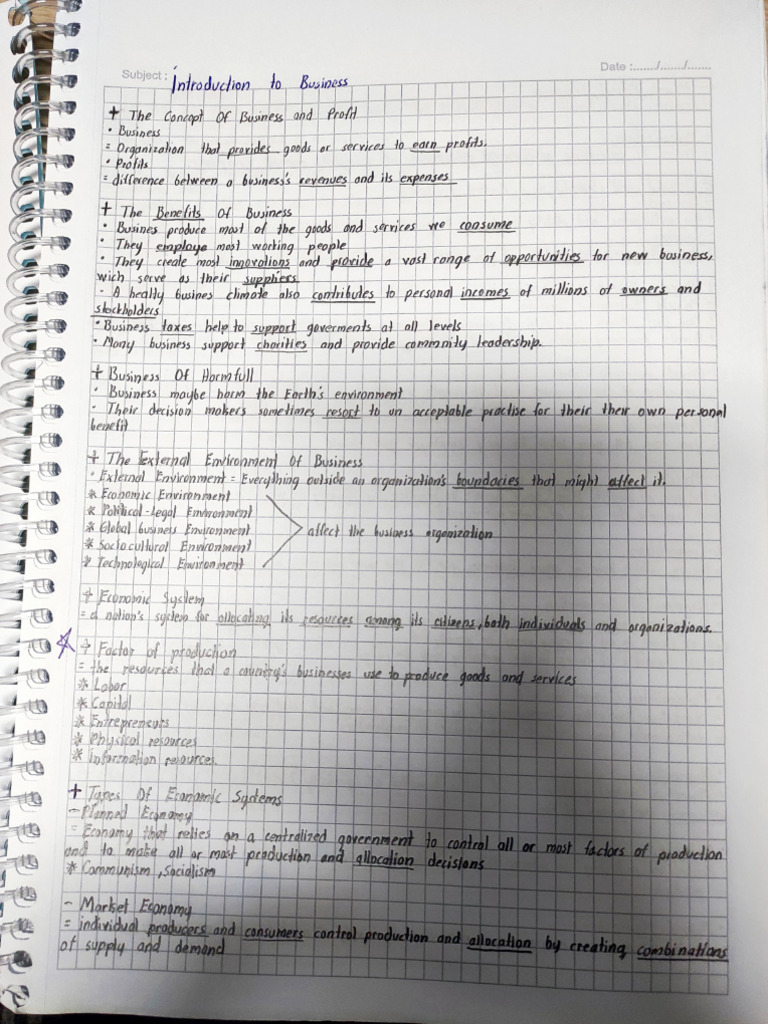 Subject : Introduction to Business
Date :......./......./.......
+ The Concept Of Business and Profit
• Business
= Organization that provides goods or services to earn profits.
• Profits
= difference between a business's revenues and its expenses
+ The Benefits Of Business
• Busines produce most of the goods and services we consume
• They employe most working people
• They create most innovations and provide a vast range of opportunities for new business,
wich serve as their suppliers
• A heally busines climate also contributes to personal incomes of millions of owners and
stockholders
• Business taxes help to support goverments at all levels
• Many business support charities and provide commnity leadership.
+ Business Of Harmfull
• Business maybe harm the Earth's environment
• Their decision makers sometimes resort to un acceptable practise for their their own personal
benefit
+ The External Environment Of Business
• External Environment = Everything outside an organization's boundacies that might affect it.
* Economic Environment
* Political-Legal Environment
* Global business Environment
* Sociocultural Environment
* Technological Environment
affect the business organization
+ Economic System
= a nation's system for allocating its resources among its citizens, both individuals and organizations.
+ Factor of production
= the resources that a country's businesses use to produce goods and services
* Labor
* Capital
* Entrepreneurs
* Physical resources
* Information resources.
+ Types Of Economic Systems
- Planned Economy
= Economy that relies on a centralized government to control all or most factors of production
and to make all or most production and allocation decisions
* Communism, Socialism
- Market Economy
= individual producers and consumers control production and allocation by creating combinations
of supply and demand